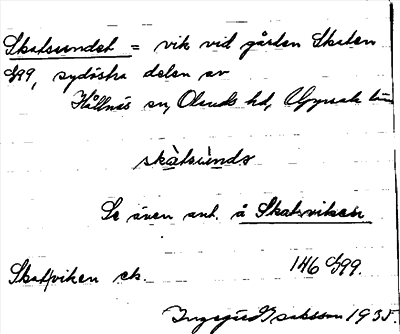 Skatsundet = vik vid gården Skaten
G99, sydöstra delen av
Hållnäs sn, Olands hd, Uppsala län
skàtsùnds
Se även ant. å Skatviken
Skatviken ek. 146 G99.
Ingegerd Isaksson 1935.